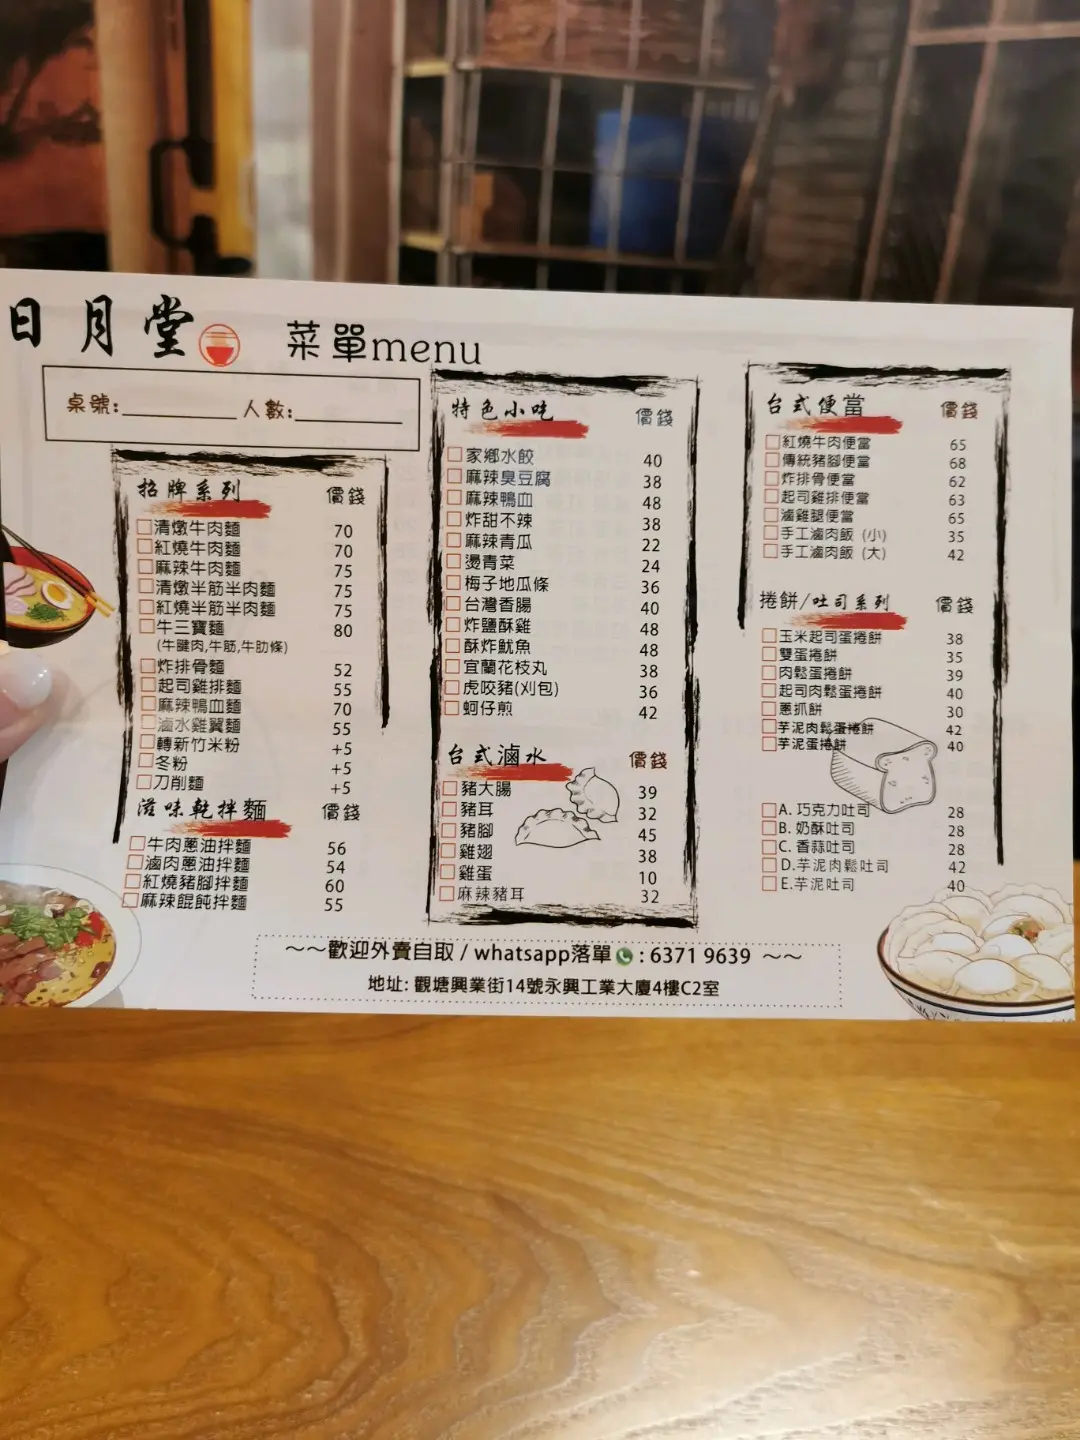 日月堂 菜單menu
桌號:__________人數:__________
招牌系列 價錢
清燉牛肉麵 70
紅燒牛肉麵 70
麻辣牛肉麵 75
清燉半筋半肉麵 75
紅燒半筋半肉麵 75
牛三寶麵 80
(牛腱肉,牛筋,牛肋條)
炸排骨麵 52
起司雞排麵 55
麻辣鴨血麵 70
滷水雞翼麵 55
轉新竹米粉 +5
冬粉 +5
刀削麵 +5
滋味乾拌麵 價錢
牛肉蔥油拌麵 56
滷肉蔥油拌麵 54
紅燒豬腳拌麵 60
麻辣餛飩拌麵 55
特色小吃 價錢
家鄉水餃 40
麻辣臭豆腐 38
麻辣鴨血 48
炸甜不辣 38
麻辣青瓜 22
燙青菜 24
梅子地瓜條 36
台灣香腸 40
炸鹽酥雞 48
酥炸魷魚 48
宜蘭花枝丸 38
虎咬豬(刈包) 36
蚵仔煎 42
台式滷水 價錢
豬大腸 39
豬耳 32
豬腳 45
雞翅 38
雞蛋 10
麻辣豬耳 32
台式便當 價錢
紅燒牛肉便當 65
傳統豬腳便當 68
炸排骨便當 62
起司雞排便當 63
滷雞腿便當 65
手工滷肉飯 (小) 35
手工滷肉飯 (大) 42
捲餅/吐司系列 價錢
玉米起司蛋捲餅 38
雙蛋捲餅 35
肉鬆蛋捲餅 39
起司肉鬆蛋捲餅 40
蔥抓餅 30
芋泥肉鬆蛋捲餅 42
芋泥蛋捲餅 40
A. 巧克力吐司 28
B. 奶酥吐司 28
C. 香蒜吐司 28
D.芋泥肉鬆吐司 42
E.芋泥吐司 40
~~歡迎外賣自取 / whatsapp落單 : 6371 9639 ~~
地址: 觀塘興業街14號永興工業大廈4樓C2室